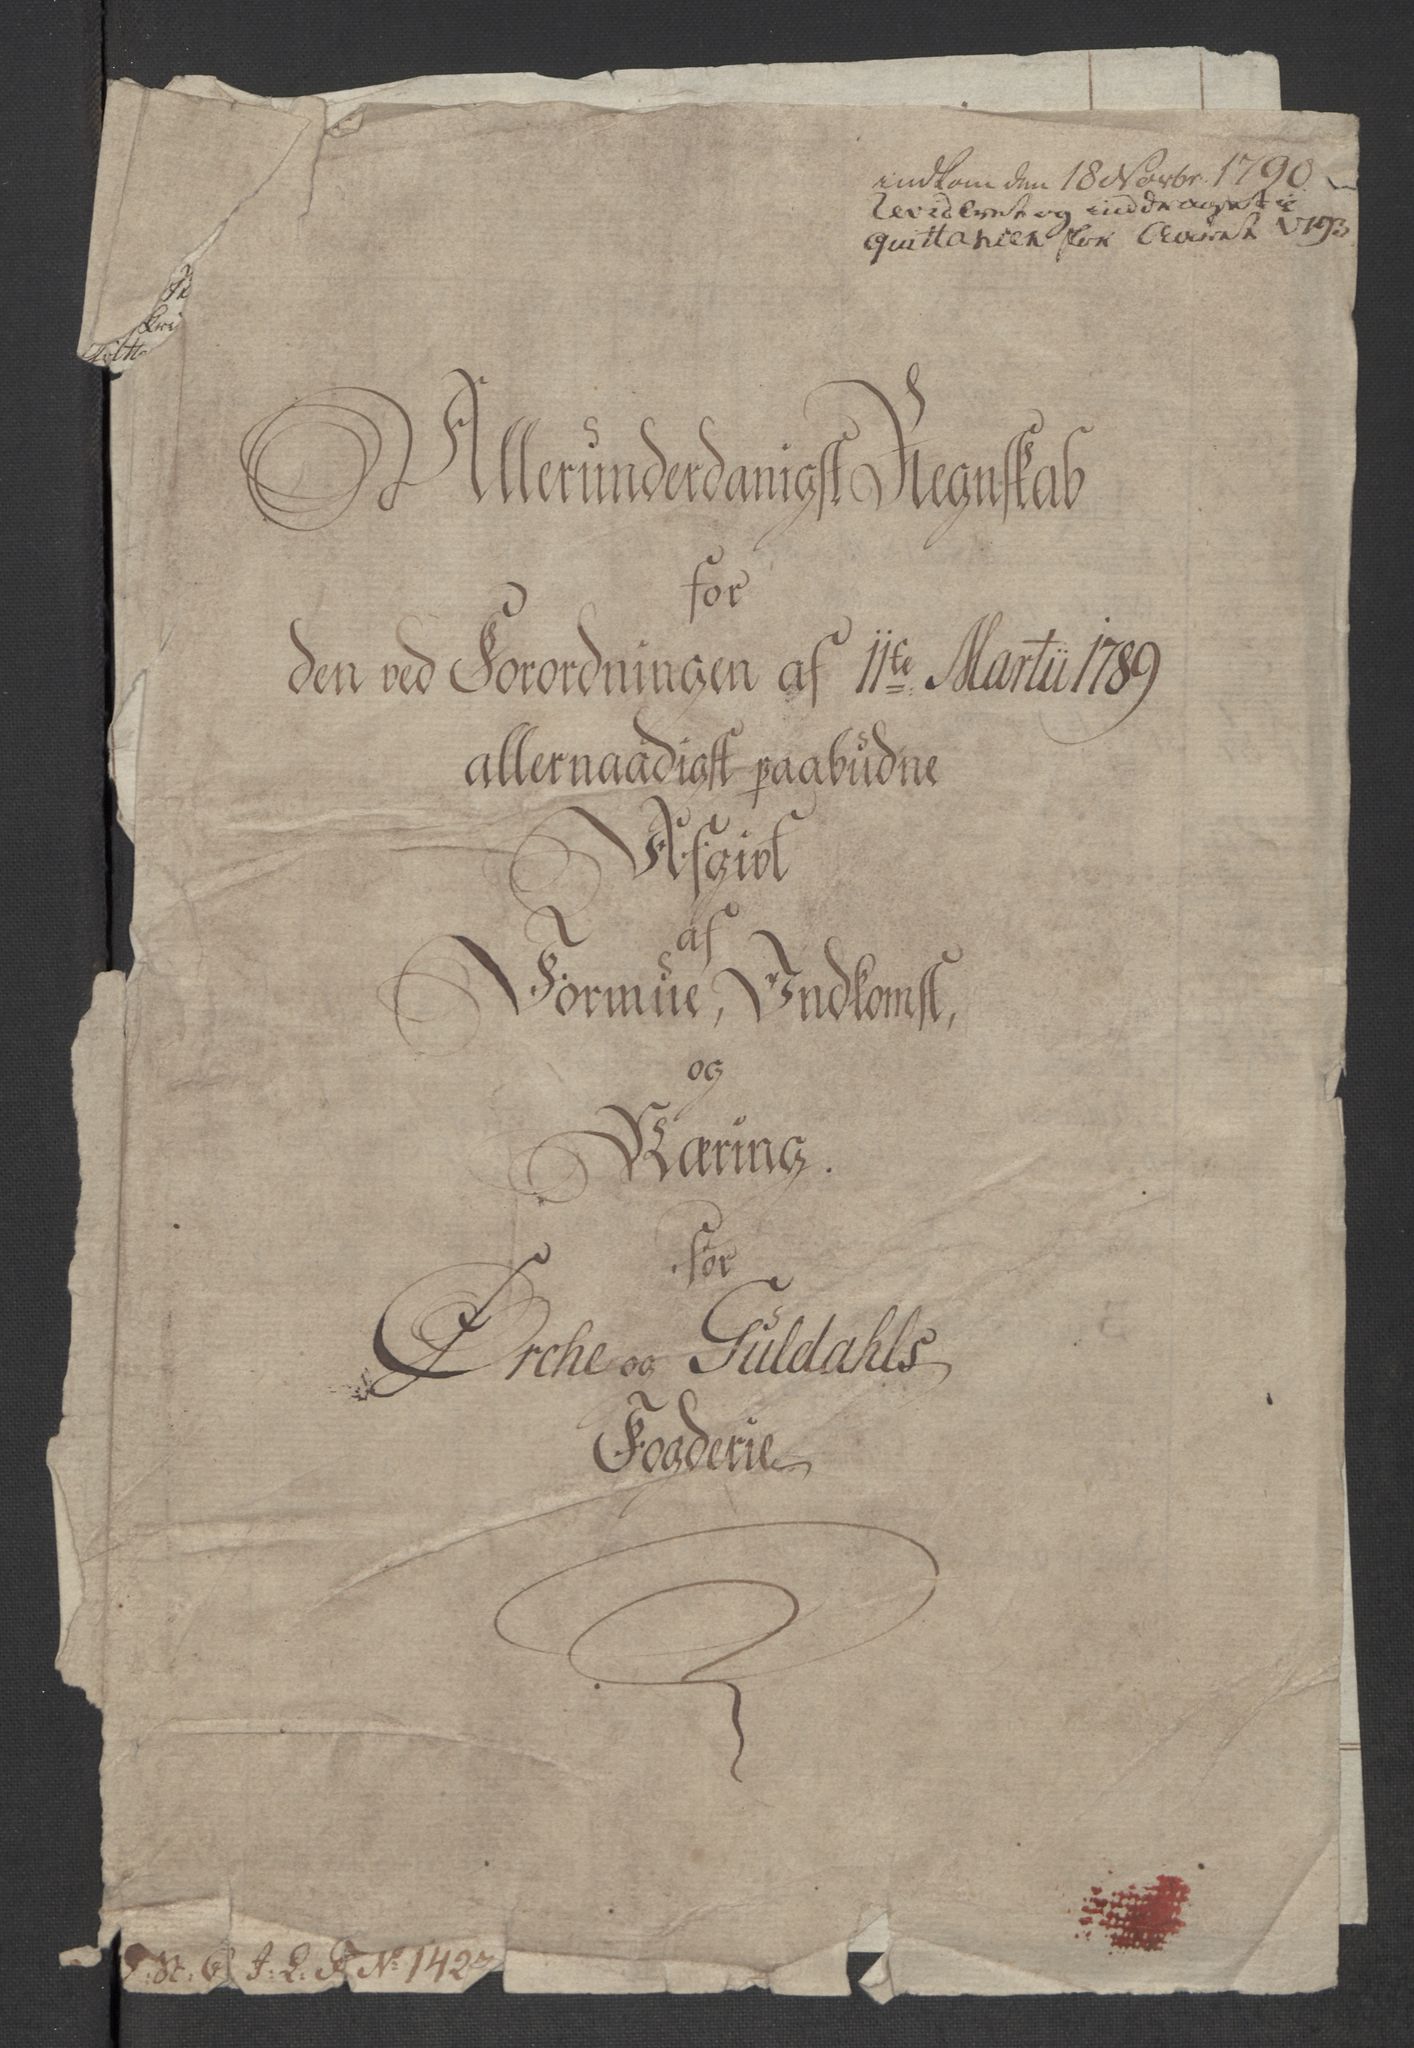 indkom den 18 Novbr. 1790.
Revideret og inddraget i
quittancen for Aaret 1793
Allerunderdanigst Regnskab
for
den ved Forordningen af 11te Martii 1789
allernaadigst paabudne
Afgivt
af
Formue, Indkomst,
og
Næring.
for
Ørche og Guldahls
Fogderie
N. 142